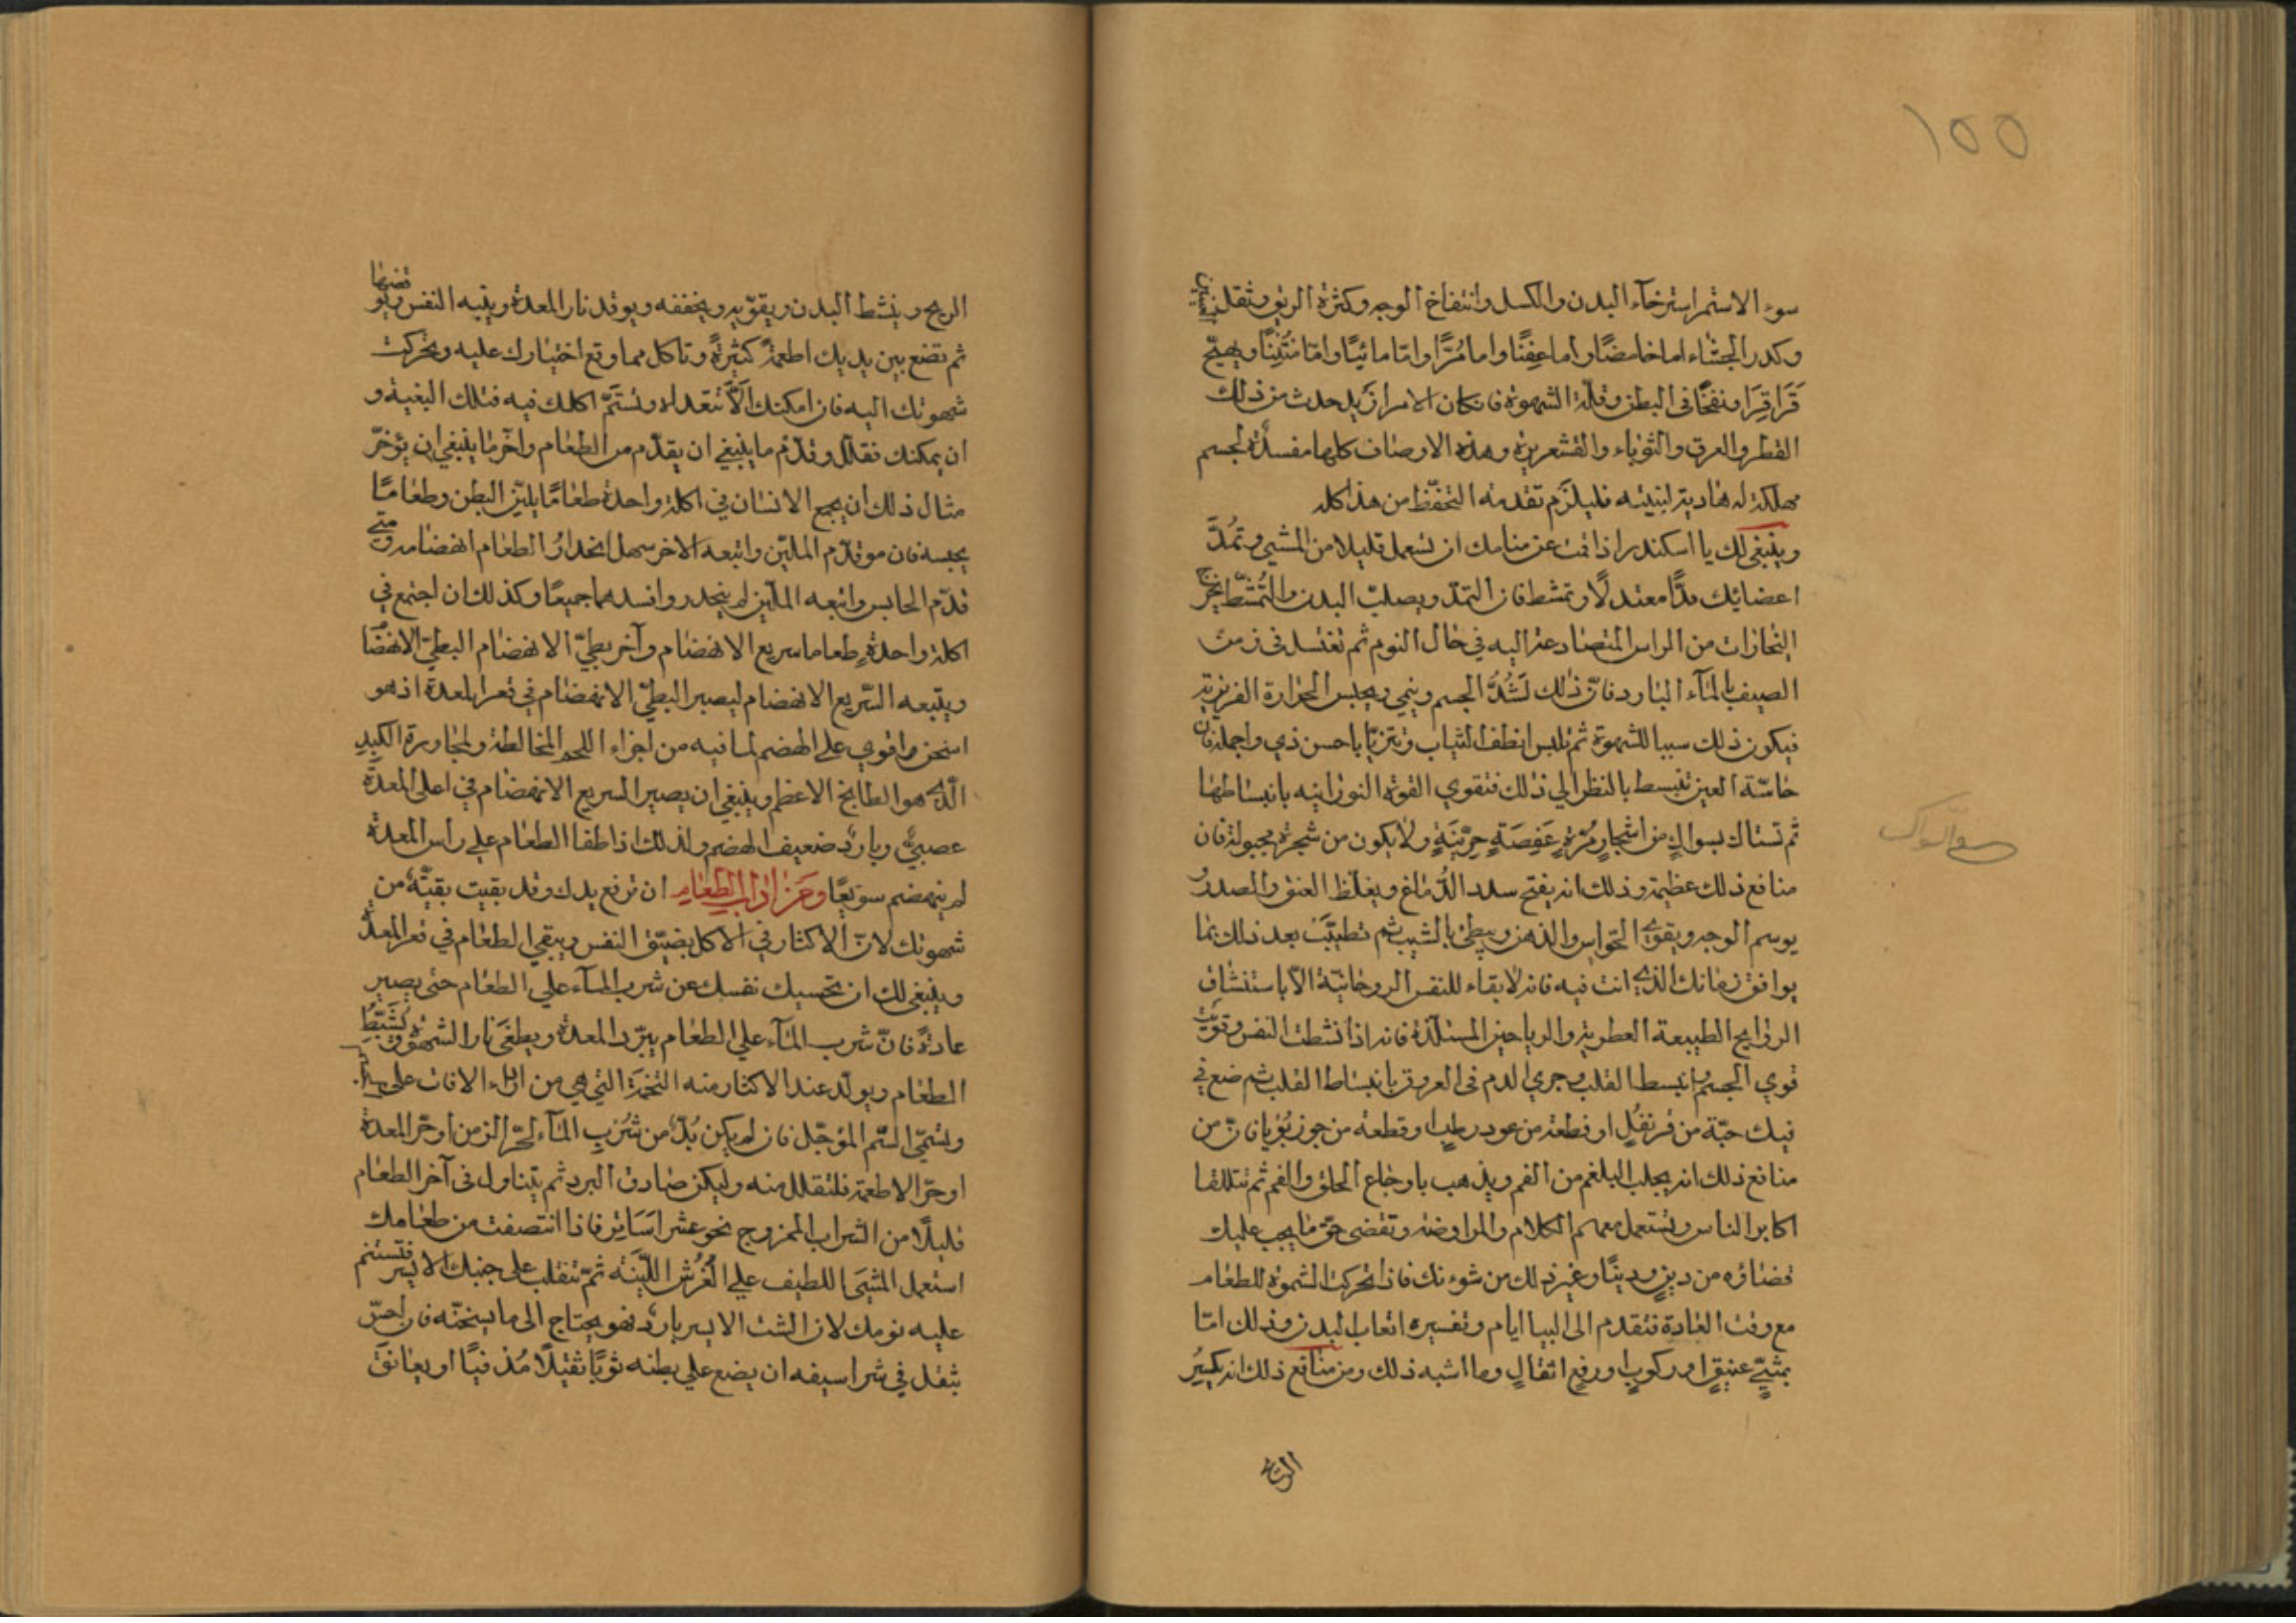 ١٥٥
سوء الاستمرا استرخآء البدن والكسل وانتفاخ الوجه وكثرة الريق وثقل العينين
وكدر الجشاء اما خامضًا واما عفِنًا واما مُرًّا وامّا مائيًا وامّا مُنتِنًا ويهيّج
قَرَاقِرَا ونفخًا فى البطن وقلّة الشهوة فانكان الامر ازيد حدث من ذلك
القطر والعرق والثوباء والقشعريرة وهذه الاوصاف كلها مفسدةٌ لجسم
مهلكة له هادية لبنيته فليلزَم تقدمة التحفّظ من هذا كله
وينبغى لك يا اسكندر اذا قمت عن منامك ان تسعمل قليلا من المشي وتمُدَّ
اعضائك مدًّا معتدلًا وتمشط فان التمدّ ويصلب البدن والتمشّط يخرج
البخارات من الراس المتصادعة اليه في حال النوم ثم تغتسل فى زمن
الصيف بالمآء البارد فانّ ذلك لَشُدُّ الجسم وينمي ويحبس الحرارة الغريزية
فيكون ذلك سببا للشهوة ثم تلبس انظف الثياب وتتزيّا باحسن ذي واجمله فان
حاسّة العين تنبسط بالنظر الي ذلك فتقوي القوة النورانيه بانبساطها
ثم تستاك بسواكٍ من اشجارٍ مُرّةٍ عَفِصَةٍ حِرِّيَةٍ ولا يكون من شجرة مجهولة فان
سواك
منافع ذلك عظيمة وذلك انه يفتح سدد الدّماغ ويغلظ العنق والصدر و
يوسم الوجه ويقوي الحواس والذهن ويبطئ بالشيب ثم تطيّبَت بعد ذلك بما
يوافق زمانك الذي انت فيه فانه لا بقاء للنفس الروحانيّة الّا باستنشاق
الروايح الطيبعة العطرية والرياحين المستلذّة فانه اذا نشطت النفس وقويت
قوي الجسم وانبسط القلب وجري الدم فى العروق بانبساط القلب ثم ضع في
فيك حبّة من قرنفُلٍ او قطعة من عود رطبٍ او قطعة من جوز بُوّيا فانّ من
منافع ذلك انه يجلب البلغم من الفم ويذهب باوجاع الحلق والفم ثم تتلقا
اكابر الناس وتستعمل معهم الكلام والمراوضة وتقضى حقّ ما يجب عليك
قضاؤه من دينٍ ودينًا وغير ذلك من شوءنك فاذا تحركت الشهوة للطعام
مع وقت العادة فتقدم الى البيا ايام وتفسيره اتعاب البدن وذلك امّا
بمشيٍ عنيقٍ او ركوبٍ او رفع اثقالٍ وما اشبه ذلك ومن منافع ذلك انه يكسِرُ
الريح
الريح وينشط البدن ويقوّيه ويخففه ويوقد نار المعدة وينبه النفس
ثم تضع بين يديك اطعمةً كثيرةً وتاكل مما وقع اختيارك عليه وتحركت
شهوتك اليه فان امكنك الّا تتعداه وتستَمّ اكلك فيه فتلك البغيه و
ان يمكنك فقلل وقدّم ما ينبغي ان يقدّم من الطعام واخّر ما ينبغي ان يؤخّر
مثال ذلك ان يجمع الانسان في اكلة واحدة طعامًا يليّن البطن وطعامًا
يحبسه فان هو قدّم المليّن واتبعه الاخر سهل انحدارُ الطعام انهضامه ومتى
قدّم الحابس واتبعه المليّن لم ينحدر وافسدهما جميعًا وكذلك ان اجتمع في
اكلة واحدةٍ طعاما سريع الانهضام وآخر بطئ الانهضام البطئ الانهضا
ويتّبعه السّريع الانهضام ليصير البطئ الانهضام في قعر المعدة اذ هو
اسخن واقوي على الهضم لما فيه من اجزاء اللحم المخالطة ولمجاورة الكبد
الّذي هو الطابخ الاعظم وينبغي ان يصير السريع الانهضام في اعلى المعدَة
عصبيٌ وباردٌ ضعيف الهضم ولذلك اذا طفا الطعام علي راس المعدة
لم ينهضم سويعًا ومن اداب الطعام ان ترفع يدك وقد بقيت بقيّةٌ من
شهوتك لانّ الاكثار في الاكل يضيّق النفس ويبقي الطعام في قعر المعدَة
وينبغى لك ان تحسبك نفسك عن شرب المآء علي الطعام حتى يصير
عادةً فانّ شرب المآء علي الطعام يبرّد المعدة ويطفئ نار الشهوة ويثبّطُ
الطعام ويولّد عند الاكثار منه التخمَة التي هي من اداء الافات على
وتسمّي السّم المؤجّل فان لم يكن بُدٌّ من شُربِ المآء لحرّ الزمن او حرّ المعدة
او حرّ الاطعمة فلتقلل منه وليكن صادق البرد ثم يتناول فى آخر الطعام
قليلًا من الشراب الممزوج نحو عشر اسَاتير فاذا انتصفت من طعامك
استعمل المشيَ اللطيف علي الفُرُش الليّنَة ثمّ تنقلب على جنبك الايسر فتستنم
عليه نومك لان الشث الايسر باردٌ فهو يحتاج الى ما يسخنّه فان احسّ
بثقل في شراسيفه ان يضع علي بطنه ثوبًا ثقيلًا مُدفيًا او يعانقَ